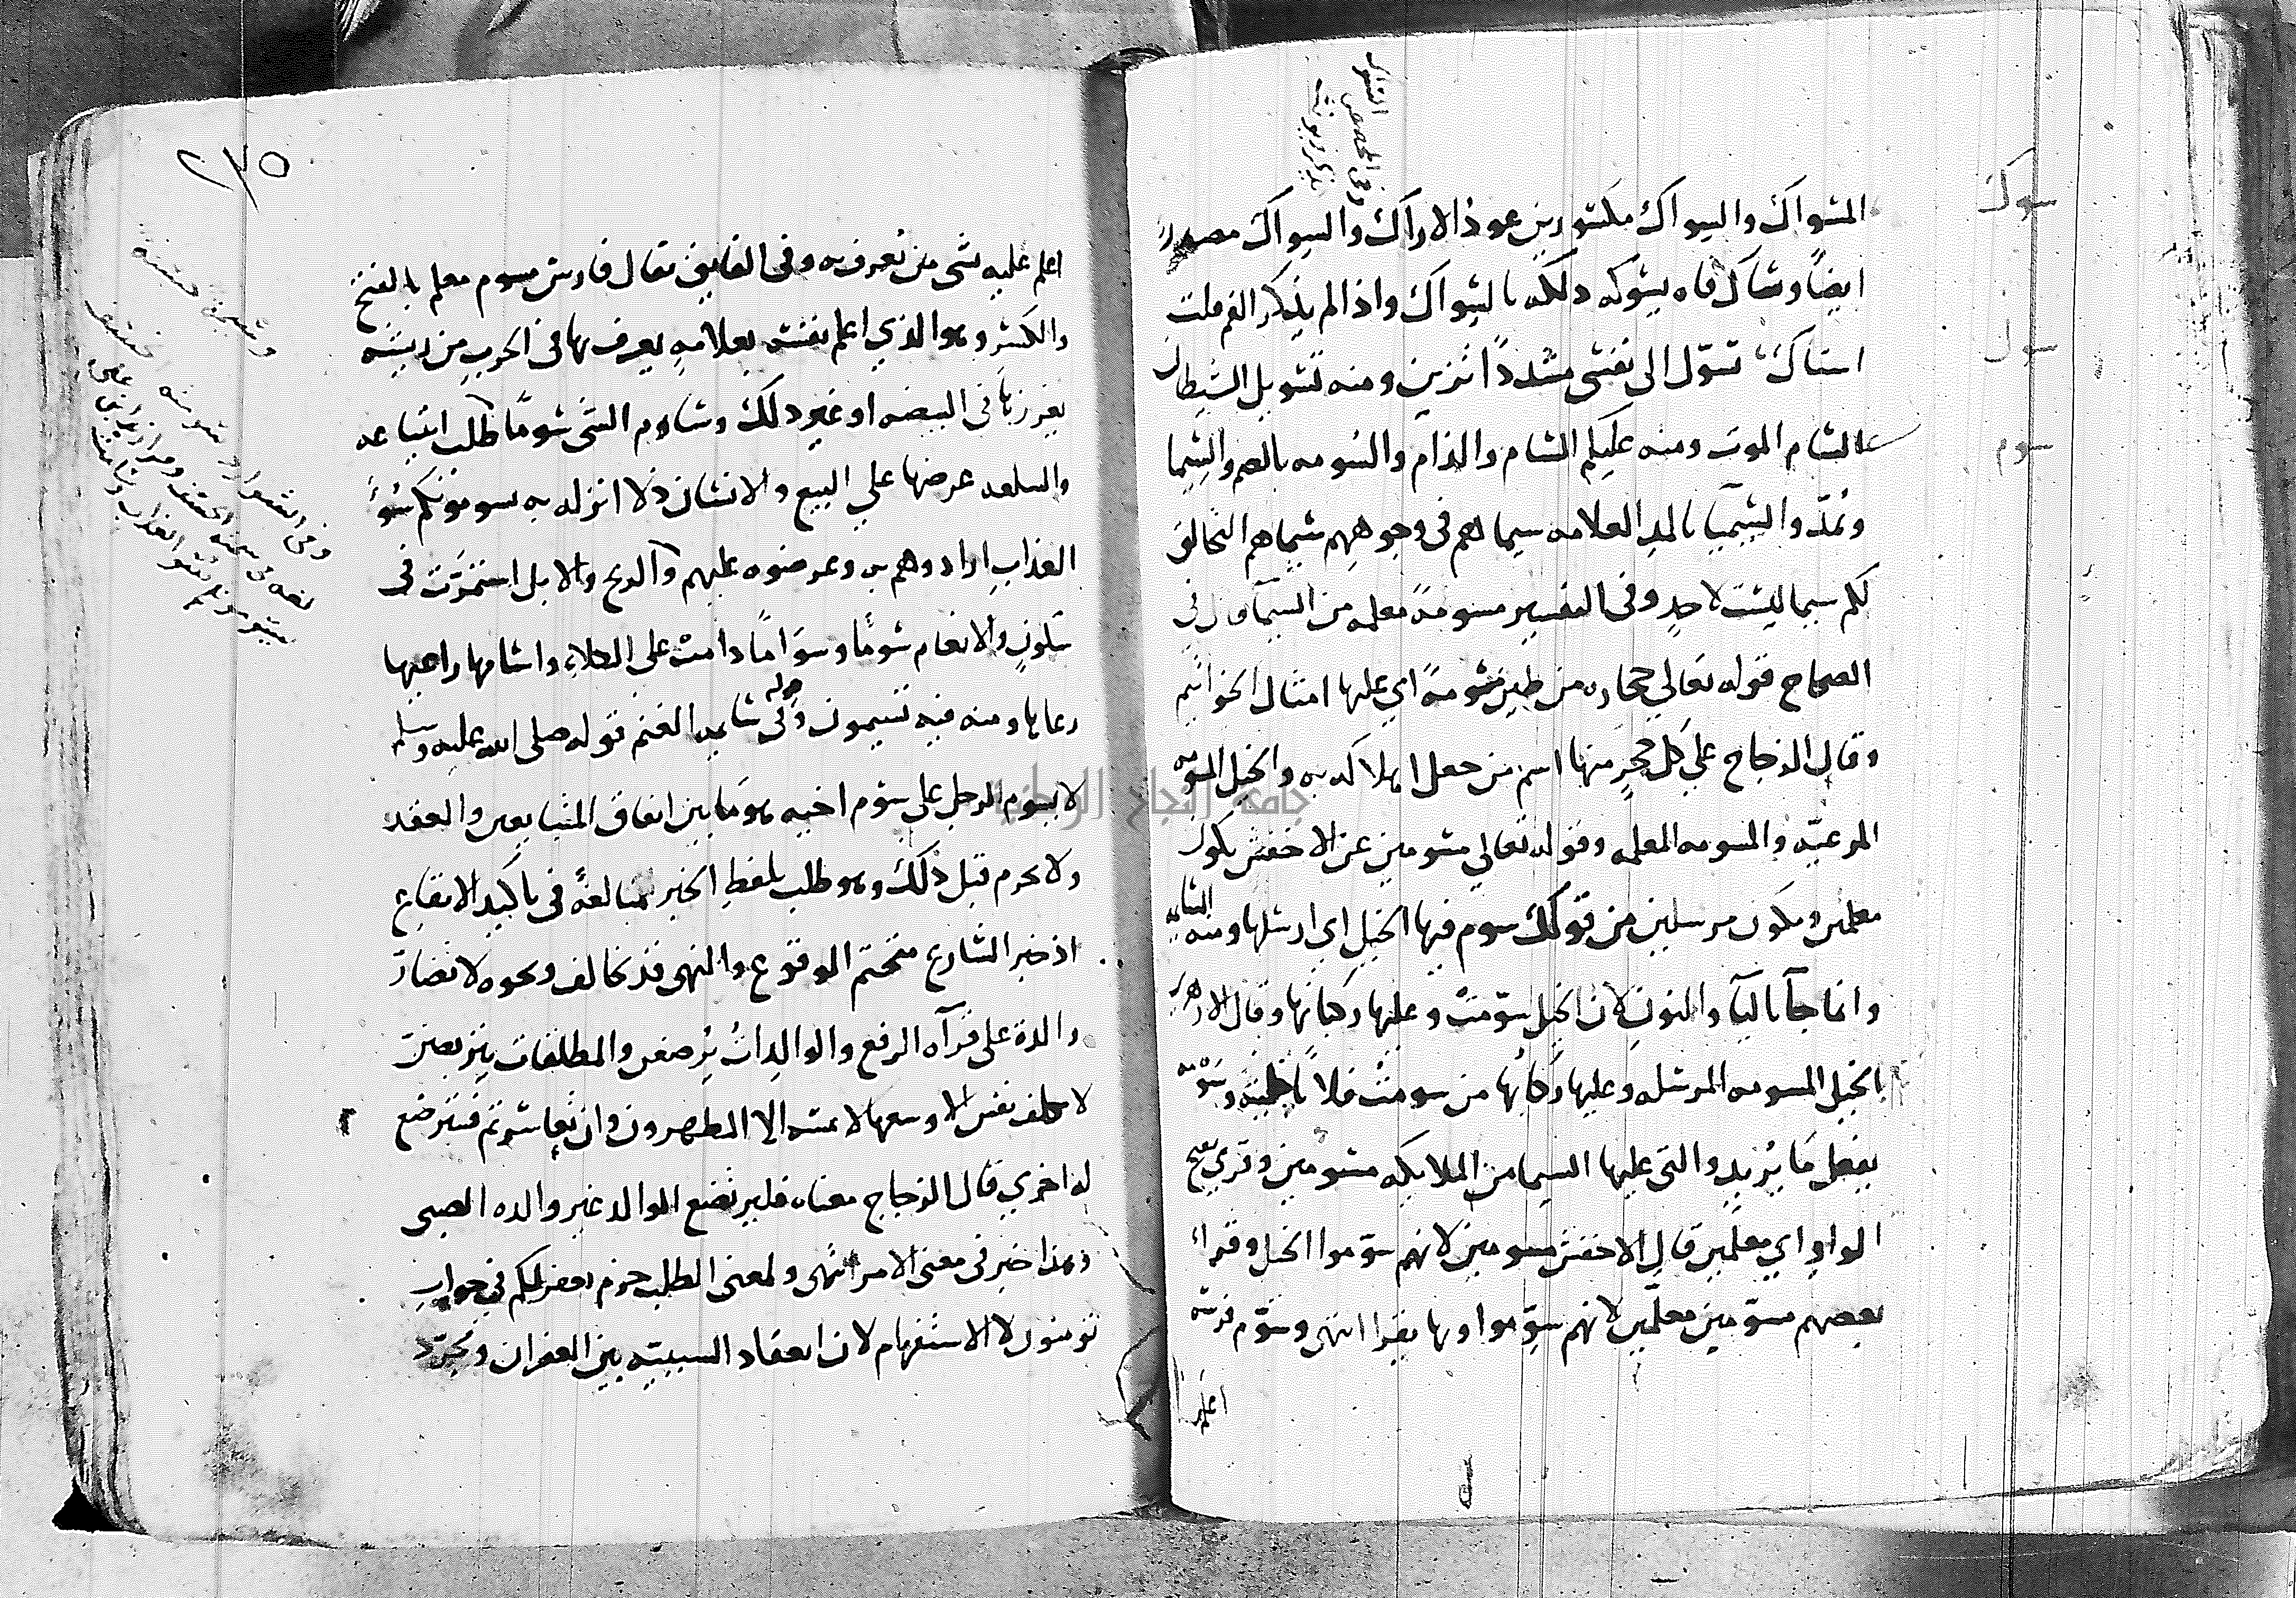 سوك
سول
سوم
المسواك والسواك مكسورين عود الاراك والسواك مصدر
ايضًا وساك فاه يسوكه دلكه بالسواك واذا لم يذكر الفم قلت
استاك تسوّل الى نفسى مشددًا تزين ومنه تسويل الشيطان
السام الموت ومنه عليكم السام والذام والسومه بالضم والسيما
وتمدّ والسيميا بالمد العلامه سيماهم فى وجوههم سيماهم التحالق
لكم سيما ليست لاحدٍ وفى التفسير مسومةً معلمه من السيما وفى
الصحاح قوله تعالي حجاره من طين مسومةً اي عليها امثال الخواتيم
وقال الزجاج علي كل حجرٍ منها اسم من جعل اهلاكه به والخيل المسومه
المرعيّه والمسومه المعلمه وقوله تعالي مسومين عن الاخفش يكون
معلمين ويكون مرسلين من قولك سوم فيها الخيل اي ارسلها ومنه السائمه
وانما جآ باليآ والنون لان الخيل سوّمت وعليها ركبانها وقال الازهرى
الخيل المسومه المرسله وعليها ركبانها من سومت فلانا خليته وسومه
يفعل ما يريد والتى عليها السيما من الملايكه مسومين وقري بفتح
الواو اي معلمين قال الاخفش مسومين لانهم سوّموا الخيل وقراء
بعضهم مسوّمين معلّمين لانهم سوّموا وبها يقرا انتهى وسوّم فرسه
اعلم
٢٧٥
اعلم عليه بشى من يعرف به وفى الفايق يقال فارس مسوم معلم بالفتح
والكسر وهو الذي اعلم نفسه بعلامه يعرف بها فى الحرب من ريشه
يغرزها فى البيضه او غير ذلك وساوم الشى سومًا طلب ابتياعه
والسلعه عرضها علي البيع والانسان ذلا انزله به يسومونكم سوءَ
العذابِ ارادوهم به وعرضوه عليهم والريح والابل استمرّت فى
سكونٍ والانعام سومًا وسوامًا دامت على الكلاءِ واسامها راعيها
رعاها ومنه فيه تسيمون وفى سايمه الغنم قوله صلى الله عليه وسلم
لا يسوم الرجل على سوم اخيه هو ما بين اتفاق المتبايعين والعقد
ولا يحرم قبل ذلك وهو طلب بلفظ الخبر مبالغةً فى تاكيد الايقاع
اذ خبر الشارع متحتم الوقوع والنهى قد يخالف ونحوه لا تضارّ
والدة على قرآه الرفع والوالدات يُرضعن والمطلقات يتربصن
لا تكلف نفس الا وسعها لا يمسه الا المطهرون وان تعاسرتم فسترضع
له اخري قال الزجاج معناه فليرضع الوالد غير والده الصبى
وهذا خبر فى معنى الامر انتهى ولمعنى الطلب جزم يغفر لكم في جواب
تومنون لا الاستفهام لان انعقاد السببيه بين الغفران ومجرّد